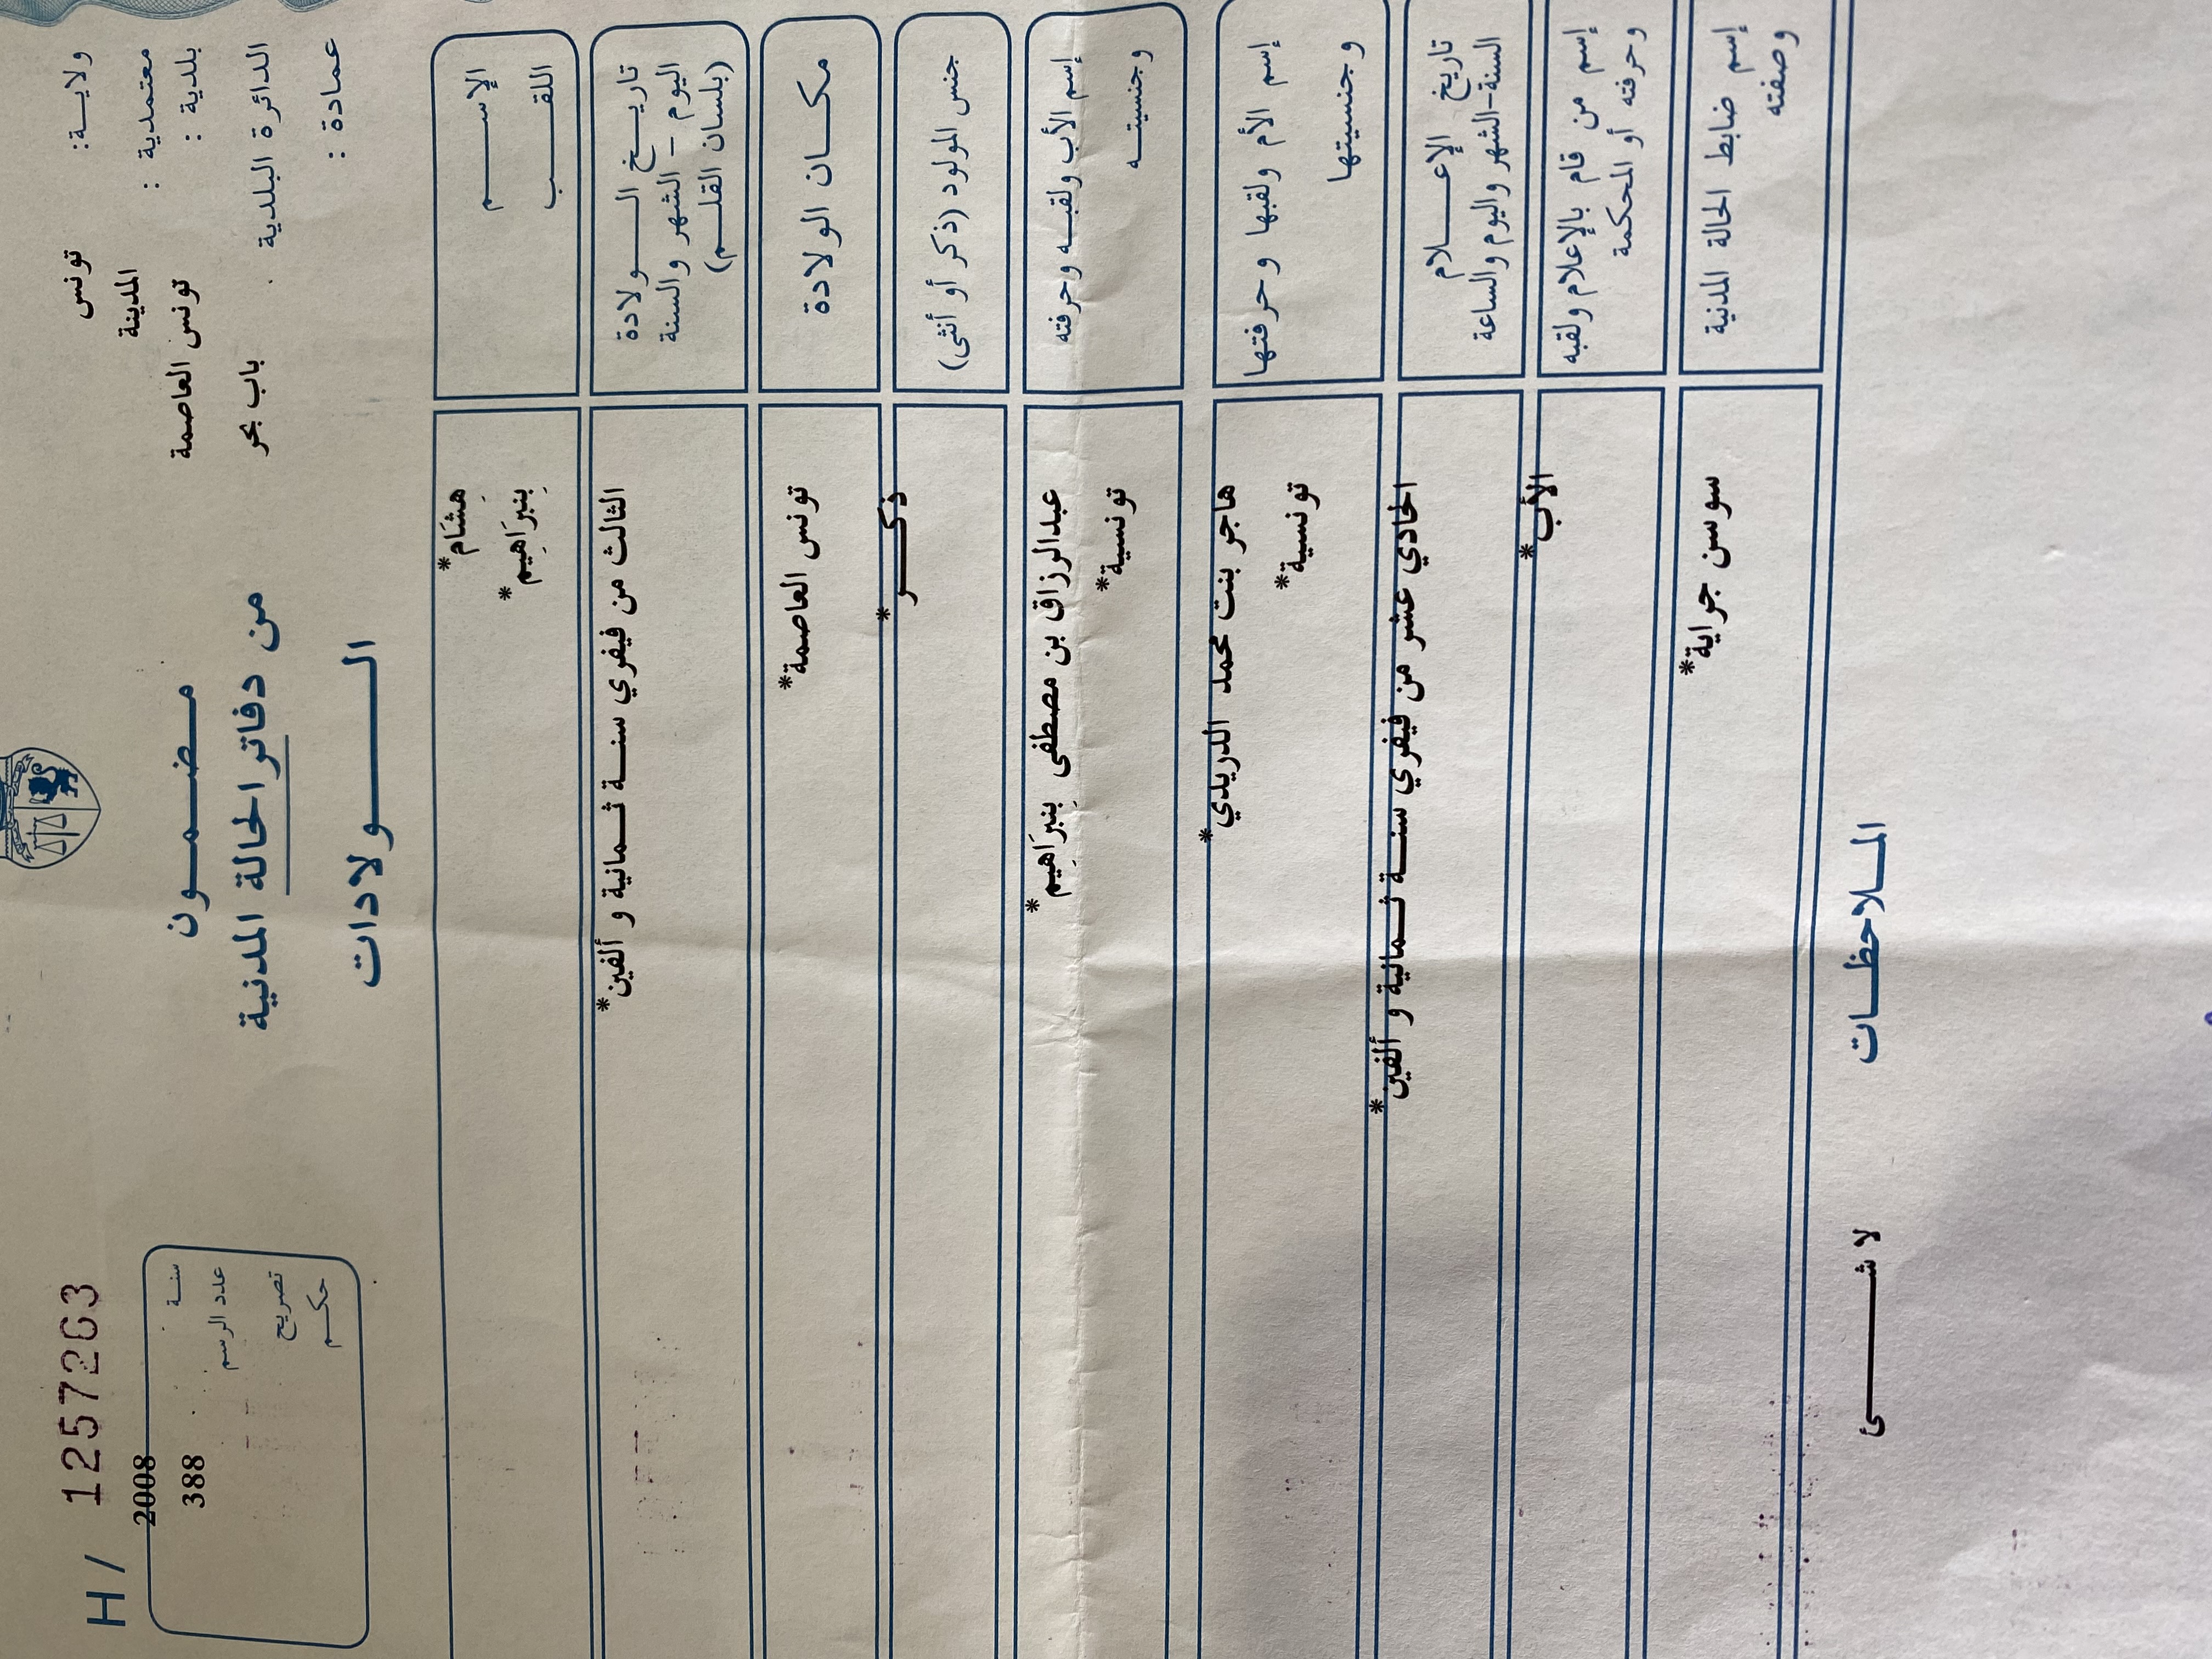 H / 1257263
ولايـــة: تونس
معتمدية : المدينة
بلدية : تونس العاصمة
الدائرة البلدية . باب بحر
عمادة :
مـضـمـــون
من دفاتر الحالة المدنية
الـــــولادات
سنــة 2008
عدد الرسم 388
تصريح
حكــم
الإســــم هِشَام*
اللقــــب بِنبرَاهِيم*
تاريــخ الـــــولادة
اليوم – الشهر والسنة
(بلسان القلــم)
الثالث من فيفري سنــة ثــمانية و ألفين*
مكــان الولادة
تونس العاصمة*
جنس المولود (ذكر أو أنثى)
ذكـــــر*
إسم الأب ولقبــه وحرفته
وجنسيتــه
عبدالرزاق بن مصطفى بِنبرَاهِيم*
تونسية*
إسم الأم ولقبها وحرفتها
وجنسيتهـا
هاجر بنت محمد الدريدي*
تونسية*
تاريخ الإعـــلام
السنة-الشهر واليوم والساعة
الحادي عشر من فيفري سنــة ثــمانية و ألفين*
إسم من قام بالإعلام ولقبه
وحرفته أو المحكمة
الأب*
إسم ضابط الحالة المدنية
وصفته
سوسن جراية*
المــلاحظــات
لا شـــــــئ